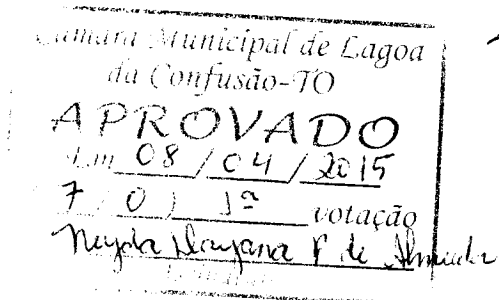 Câmara Municipal de Lagoa
da Confusão-TO
APROVADO
Em 08 / 04 / 2015
7 / 0 ) 1ª votação
de Almeida